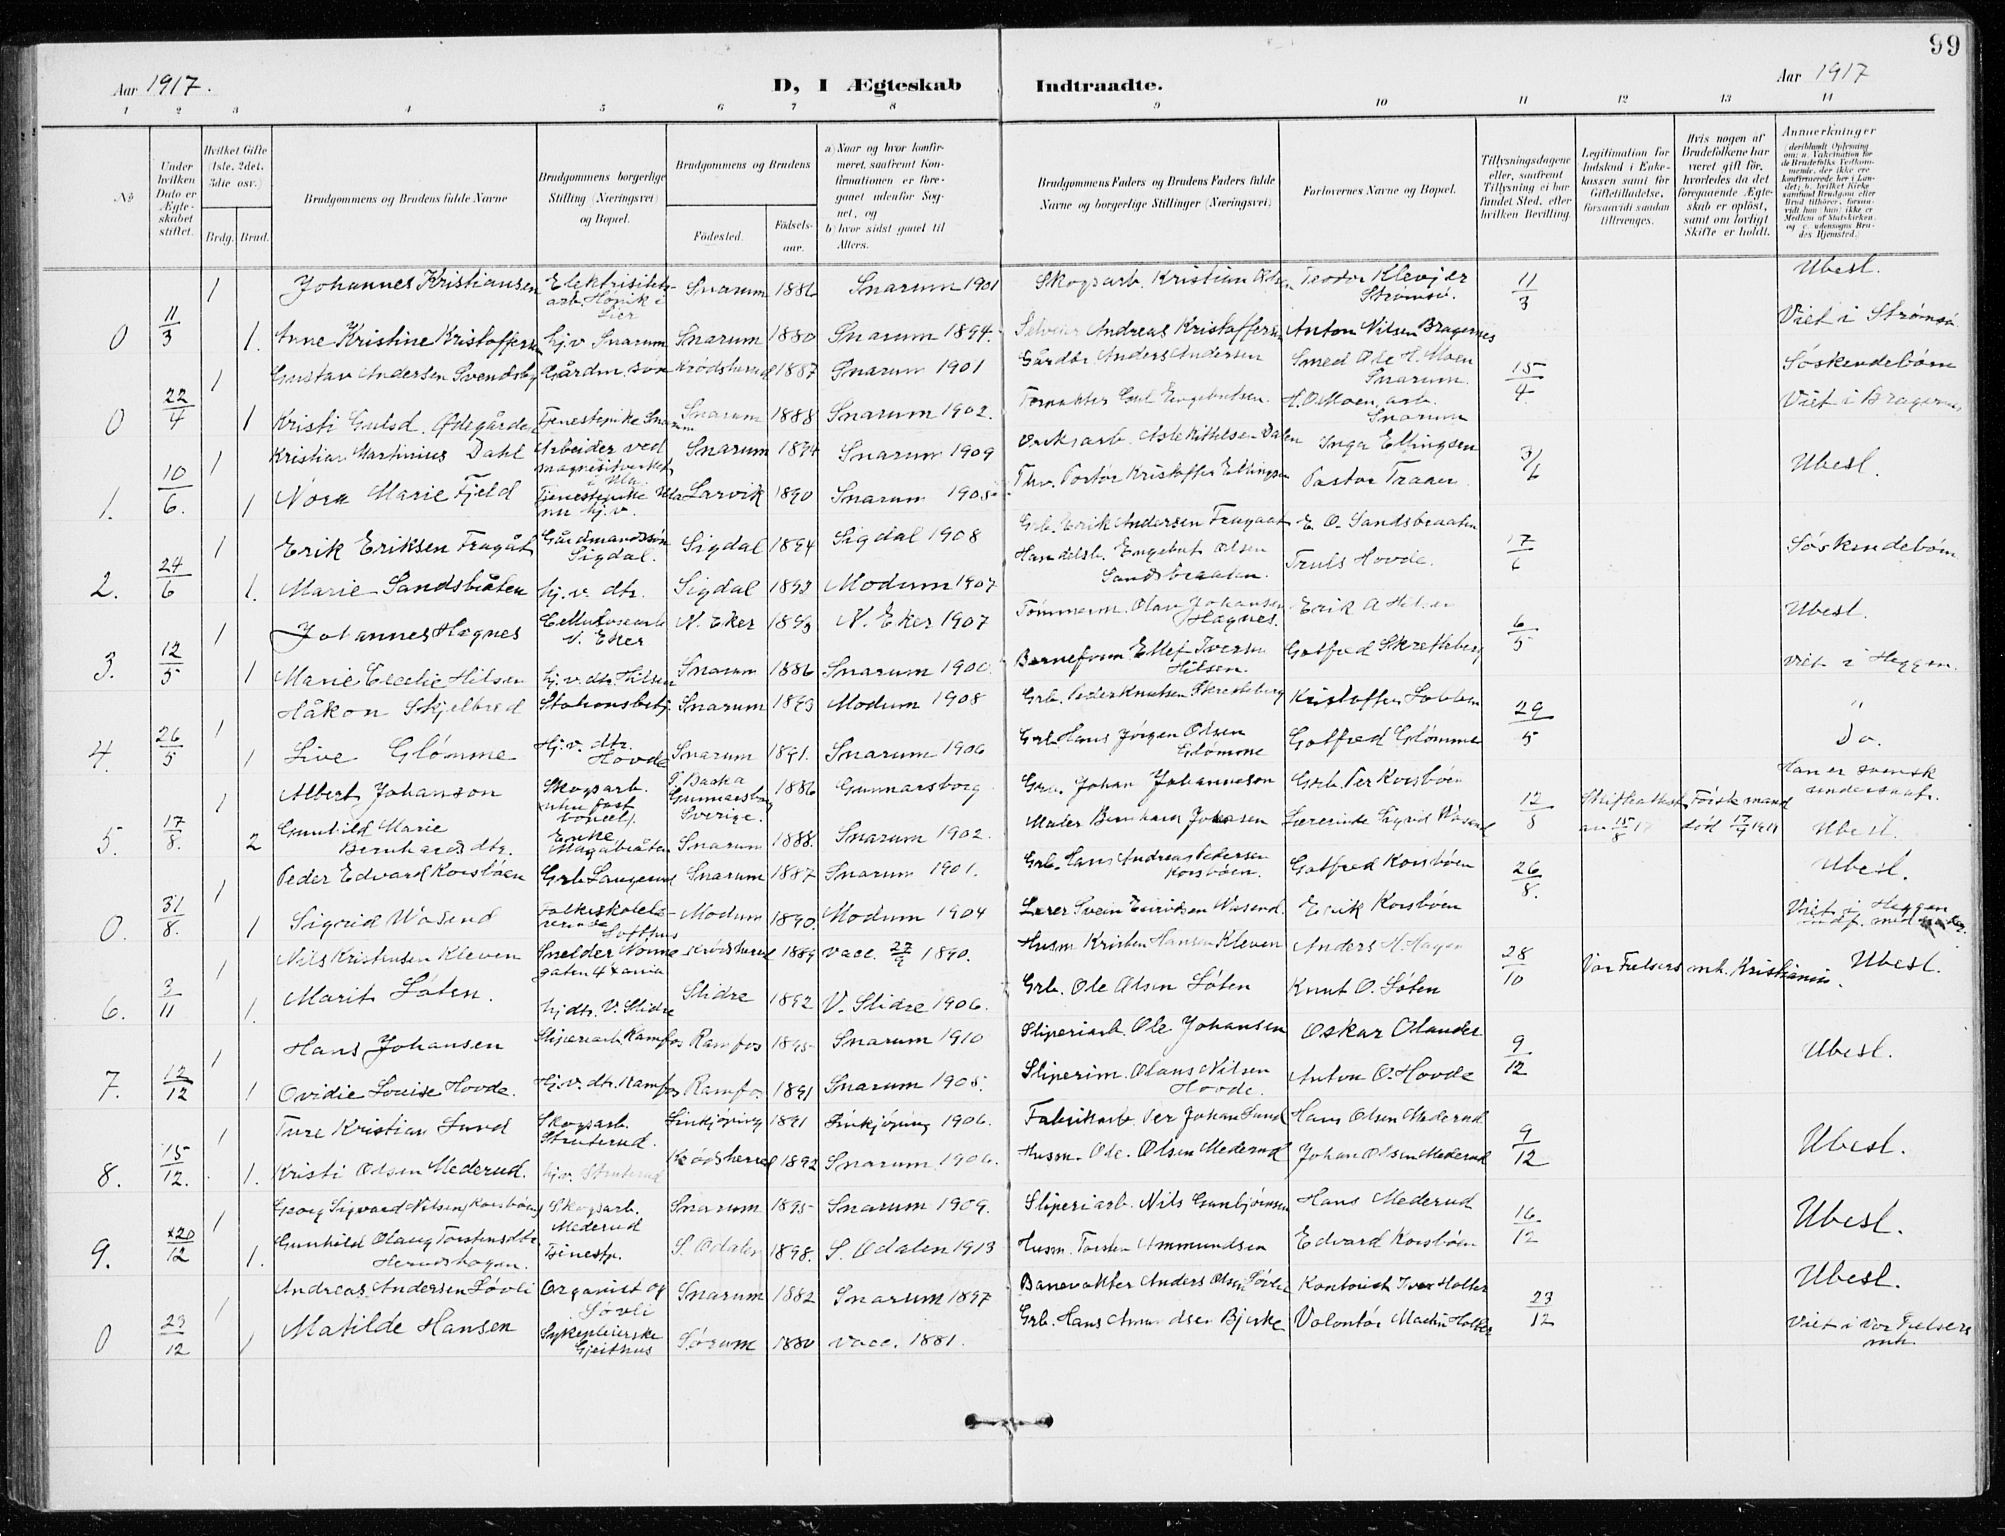 99
Aar 1917.
D, I Ægteskab Indtraadte.
Aar 1917
1 2 3 4 5 6 7 8 9 10 11 12 13 14
No
Under hvilken Dato er Ægteskabet stiftet.
Hvilket Gifte (1ste, 2det, 3die osv.)
Brdg. Brud.
Brudgommens og Brudens fulde Navne
Brudgommens borgerlige Stilling (Næringsvei) og Bopæl.
Brudgommens og Brudens
Fødested.
Fødselsaar.
a) Naar og hvor konfirmeret, saafremt Konfirmationen er foregaaet udenfor Sognet, og
b) hvor sidst gaaet til Alters.
Brudgommens Faders og Brudens Faders fulde Navne og borgerlige Stillinger (Næringsvei)
Forlovernes Navne og Bopæl.
Tillysningsdagene eller, saafremt Tillysning ei har fundet Sted, efter hvilken Bevilling.
Legitimation for Indskud i Enkekassen samt for Giftetilladelse, forsaavidt saadan tiltrænges.
Hvis nogen af Brudefolkene har været gift før, hvorledes da det foregaaende Ægteskab er opløst, samt om lovligt Skifte er holdt.
Anmerkninger
1 Johannes Kristiansen Elektrisitets-arb. Hønik i Lier Snarum 1886 Snarum 1901 Skogsarb. Kristian Olsen Teodor Klevjer Strømsø. 11/3 Ubesl.
0 11/3 1. Anne Kristine Kristoffersen hj.v. Snarum Snarum 1880 Snarum 1894. Selveier Andreas Kristoffersen Anton Nilsen Bragernes Viet i Strømsø
1 Gustav Andersen Svendsby Gårdm. søn Krødsherad 1887 Snarum 1901 Gårdbr. Anders Andersen Smed Ole H. Moen Snarum. 15/4 Søskendebørn
0 22/4 1 Kristi Gulsd. Ødegården Tjenestepike Snarum Snarum 1888 Snarum 1902. Gul Engebretsen H. O. Moen, arb. Snarum Viet i Bragernes
1 Kristian Martinius Dahl Arbeider ved magnesitverket i Snarum 1894 Snarum 1909 Dalen Inga Ellingsen 3/6 Ubesl.
1. 10/6. 1 Nora Marie Fjeld Tjenestepike nu hj.v. Larvik 1890 Snarum 1905 Kristoffer Ellingsen Pastor Traaen
1 Erik Eriksen Fragåt Gårdmandssøn Sigdal. Sigdal 1894 Sigdal 1908 Grb. Erik Andersen Fragaat E. O. Sandsbraaten 17/6 Søskendebørn
2. 24/6 1. Marie Sandsbråten hj.v. dtr. Sigdal 1893 Modum 1907 Handelsb. Engebret Olsen Sandsbraaten. Truls Hovde.
1 Johannes Hagnes Cellulosearb. N. Eker N. Eker 1893 N. Eker 1907 Tømmerm. Olav Johansen Hagnes. Erik A Hilsen 6/5 Ubesl.
3. 12/5 1 Marie Cecelie Hilsen hj.v. dtr. Hilsen Snarum 1886 Snarum 1900. Ellef Iversen Hilsen. Gotfred Skretteberg Viet i Heggen.
1 Håkon Skjelbred Stationsbetj. Snarum 1893 Modum 1908 Grb. Peder Knutsen Skretteberg Kristoffer 29/5 "
4. 26/5 1 Live Glømme Hj.v. dtr. Hovde Snarum 1891. Snarum 1906 Grb. Hans Jørgen Olsen Glømme Gotfred Glømme Do.
1 Albert Johanson Skogsarb. uten fast bopæl. Gunnarsborg Sverige. 1886 Gunnarsborg Grb. Johan Johanneson Grb. Per Korsbøen 12/8 Skifteattest av 15/8 17 Første mand død 17/9 1914 Han er svensk undersaat.
5. 17/8. 2 Gunhild Marie Bernhardsdtr. Enke Snarum 1888. Snarum 1902. Maler Bernhard Johnsen Lærerinde Sigrid Wasend Ubesl.
1 Peder Edvard Korsbøen Grb. Langerud Snarum 1887 Snarum 1901. Grb. Hans Andreas Pedersen Korsbøen. Gotfred Korsbøen 26/8. Ubesl.
0. 31/8. 1 Sigrid Wasend Folkeskolelærerinde Softhus Modum 1890. Modum 1904 Lærer Svein Eivindsen Wasend. Erik Korsbøen Viet i Heggen
1 Nils Kristensen Kleven Snelder Nonnegaten 4 Xania Krødsherad 1889 vacc. 27/9 1890. Husm. Kristen Hansen Kleven Anders H. Hagen 28/10 Vor Frelsers mh. Kristiania. Ubesl.
6. 3/11 1. Marit Løten. hj.dtr. V. Slidre Slidre 1892 V. Slidre 1906. Grb. Ole Olsen Løten Knut O. Løten
1 Hans Johansen Sliperiarb. Ramfos Ramfos 1895 Snarum 1910 Sliperiarb. Ole Johansen Oskar Olander 9/12 Ubesl.
7. 12/12 1 Ovidie Louise Hovde. Hj.v. dtr. Ramfos Ramfos 1891 Snarum 1905. Sliperim. Olaus Nilsen Hovde. Anton O. Hovde
1 Ture Kristian Lund Skogsarb. Struterud. Linkjöping 1891 Linkjöping 1906. Fabrikarb. Per Johan Lund Hans Olsen Mederud 9/12 Ubesl.
8. 15/12. 1. Kristi Olsen Mederud. hj.v. Struterud Krødsherred 1892 Snarum 1906. Husm. Ole Olsen Mederud Johan Olsen Mederud
1 Georg Sigvard Nilsen Korsbøen Skogsarb. Mederud Snarum 1895 Snarum 1909. Sliperiarb. Nils Gunbjørnsen Hans Mederud 16/12 Ubesl.
9. x20/12 1. Gunhild Olaug Torstensdtr. Herudshagen. Tjenestp. S. Odalen 1898. S. Odalen 1913 Husm. Torsten Ammundsen Edvard Korsbøen
1 Andreas Andersen Løvli Organist og Løvli Snarum 1882 Snarum 1897 Banevokter Anders Olsen Løvlie Kontorist Iver Holter 23/12 Ubesl.
0 23/12 1 Matilde Hansen Sykepleierske Gjeithus Sørum 1880 vacc. 1881. Grb. Hans Bjerke Volontør Martin Holter Viet i Vor Frelsers mh.